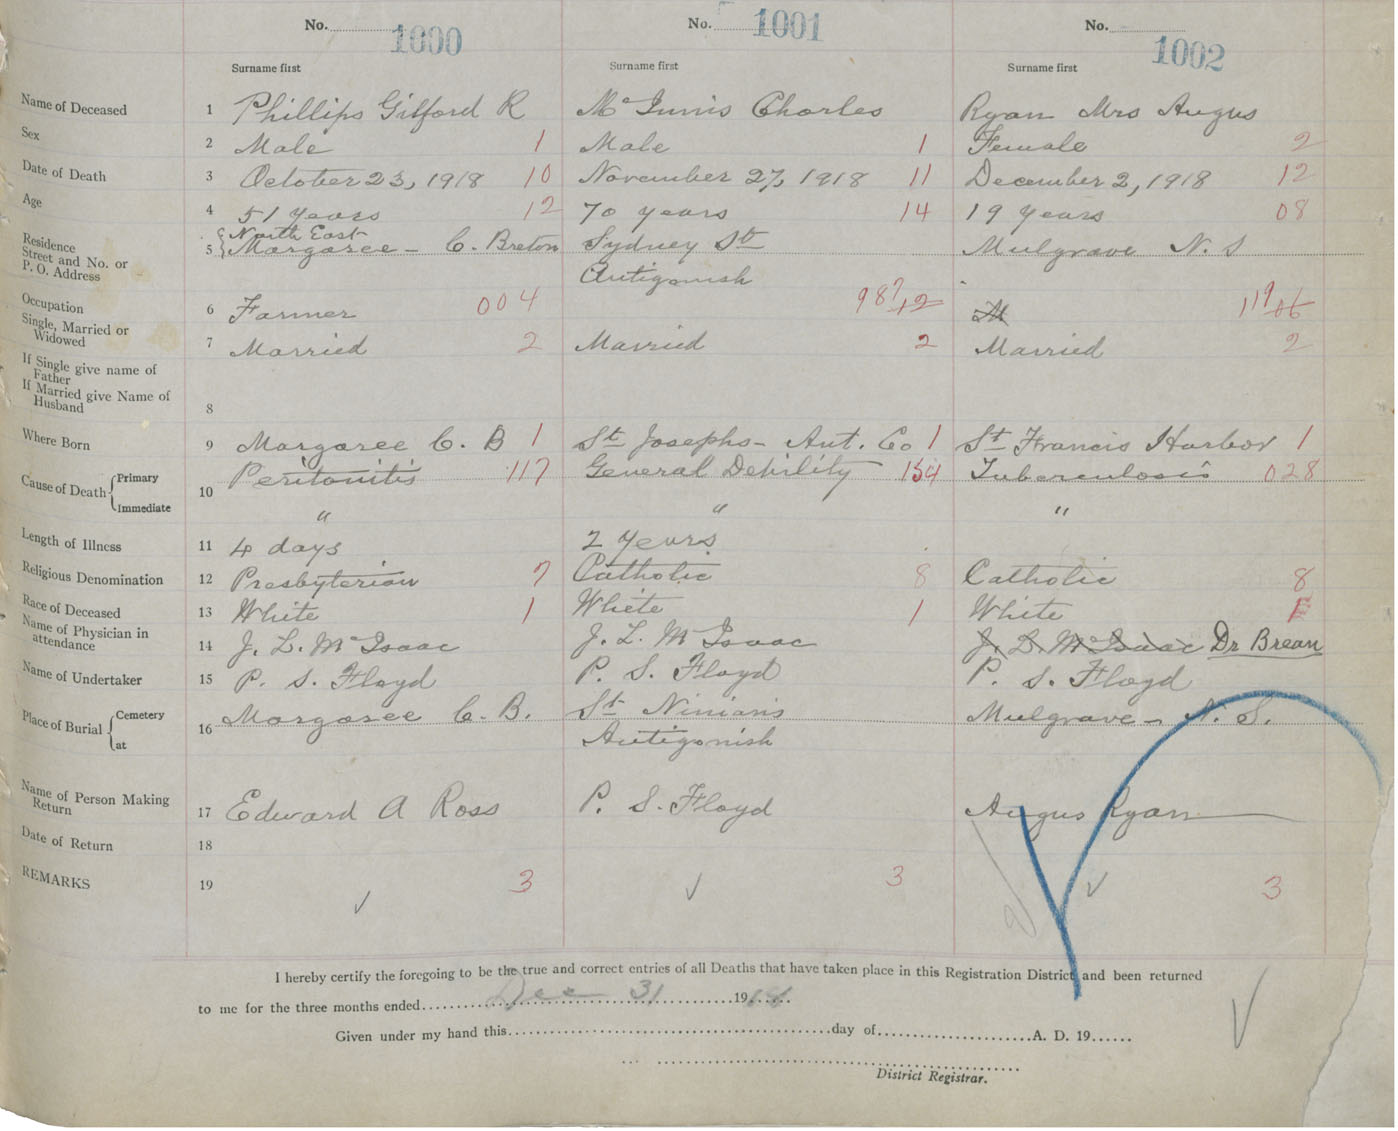 No. 1000 No. 1001 No. 1002
Surname first Surname first Surname first
Name of Deceased 1 Phillips Gifford R McInnis Charles Ryan Mrs Angus
Sex 2 Male 1 Male 1 Female 2
Date of Death 3 October 23, 1918 10 November 27, 1918 11 December 2, 1918 12
Age 4 51 years 12 70 years 14 19 years 08
North East
Residence Street and No. or P. O. Address 5 Margaree - C. Breton Sydney St Mulgrave N. S
Antigonish
Occupation 6 Farmer 004
Single, Married or Widowed 7 Married 2 Married 2 Married 2
If Single give name of Father
If Married give Name of Husband 8
Where Born 9 Margaree C. B 1 St Josephs - Ant. Co 1 St Francis Harbor 1
Cause of Death Primary 10 Peritonitis 117 General Debility 154 Tuberculosis 028
Immediate " " "
Length of Illness 11 4 days 2 years
Religious Denomination 12 Presbyterian 7 Catholic 8 Catholic 8
Race of Deceased 13 White 1 White 1 White 1
Name of Physician in attendance 14 J. L. McIsaac J. L. McIsaac J. L. McIsaac Dr Brean
Name of Undertaker 15 P. S. Floyd P. S. Floyd P. S. Floyd
Place of Burial Cemetery at 16 Margaree C. B. St Ninians Mulgrave - N. S.
Antigonish
Name of Person Making Return 17 Edward A Ross P. S. Floyd Angus Ryan
Date of Return 18
REMARKS 19 3 3 3
I hereby certify the foregoing to be the true and correct entries of all Deaths that have taken place in this Registration District and been returned
to me for the three months ended Dec 31 1918
Given under my hand this day of A. D. 19
District Registrar.